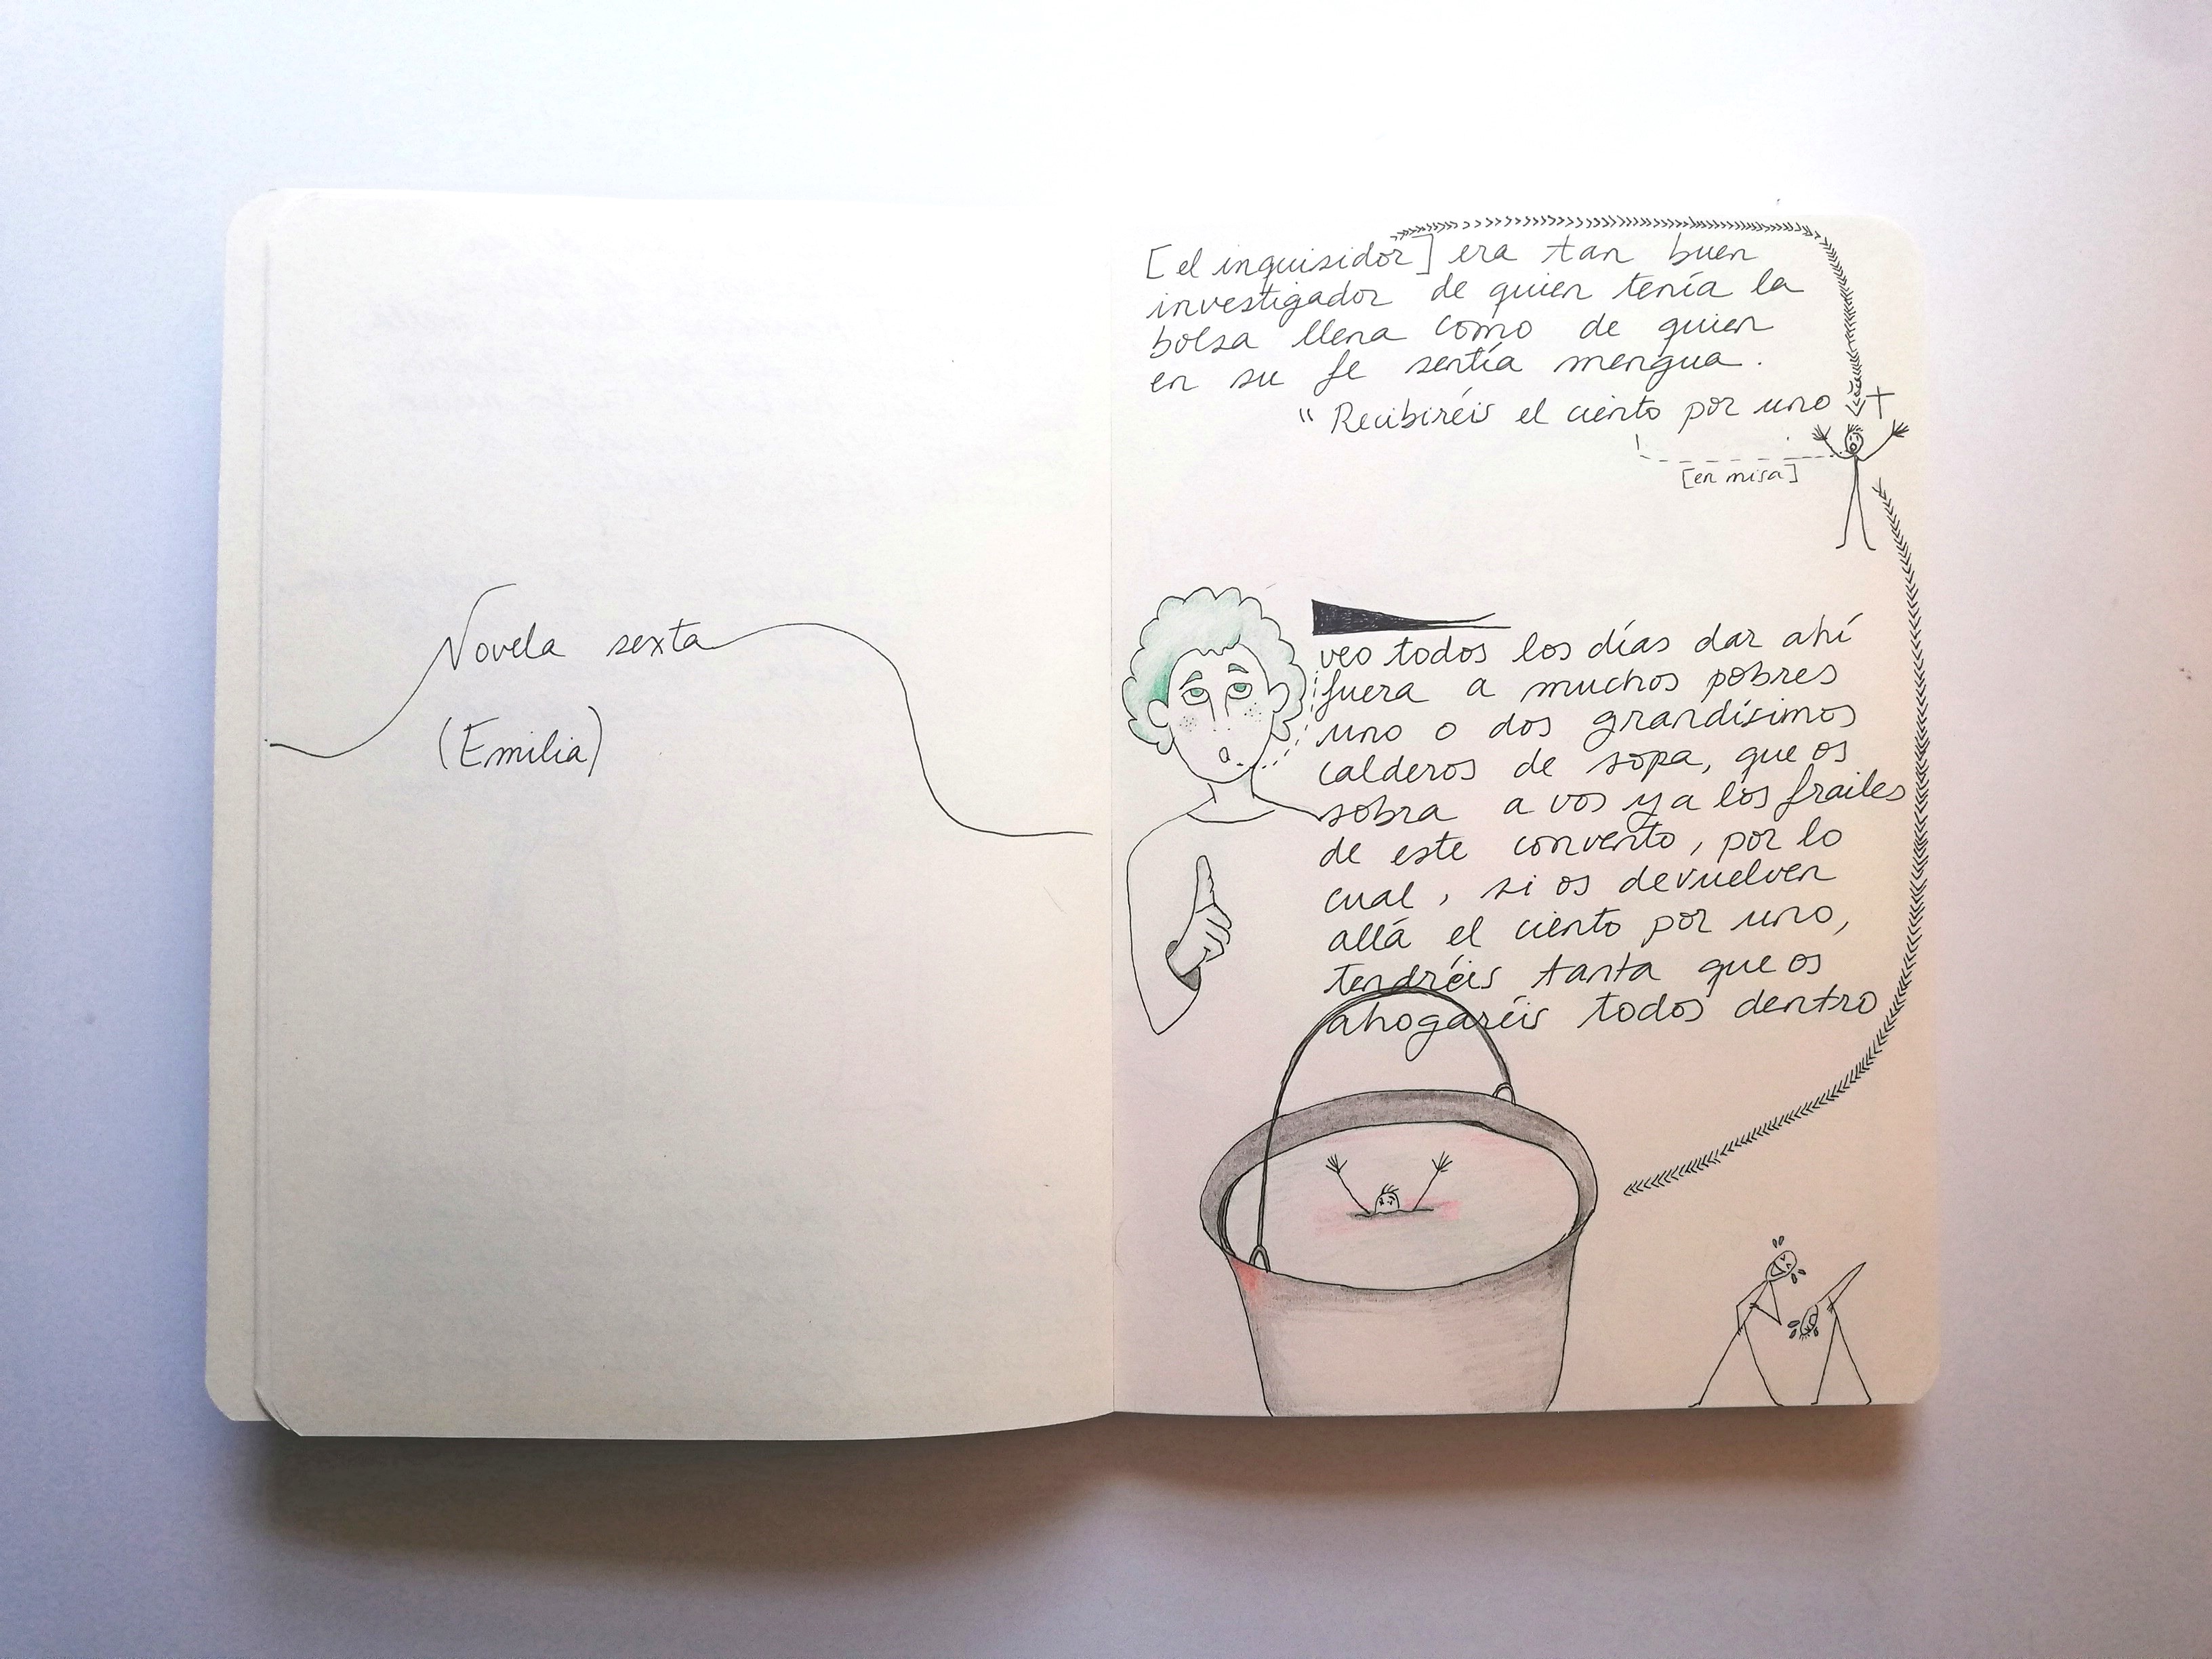 Novela sexta
(Emilia)
[el inquisidor] era tan buen
investigador de quien tenía la
bolsa llena como de quien
en su fe sentía mengua.
"Recibiréis el ciento por uno"
[en misa]
veo todos los días dar ahí
fuera a muchos pobres
uno o dos grandísimos
calderos de sopa, que os
sobra a vos y a los frailes
de este convento, por lo
cual, si os devuelven
allá el ciento por uno,
tendréis tanta que os
ahogaréis todos dentro